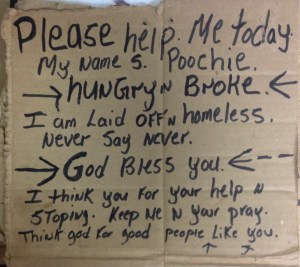 Please help. Me today.
My Name S. Poochie.
→ hUNGry N Broke ←
I am Laid OFF N homeless.
Never Say Never.
→ God Bless you. ← - -
I think you For your help N
SToping. Keep Me N your pray.
Think god For good people Like you.
↑ ↑